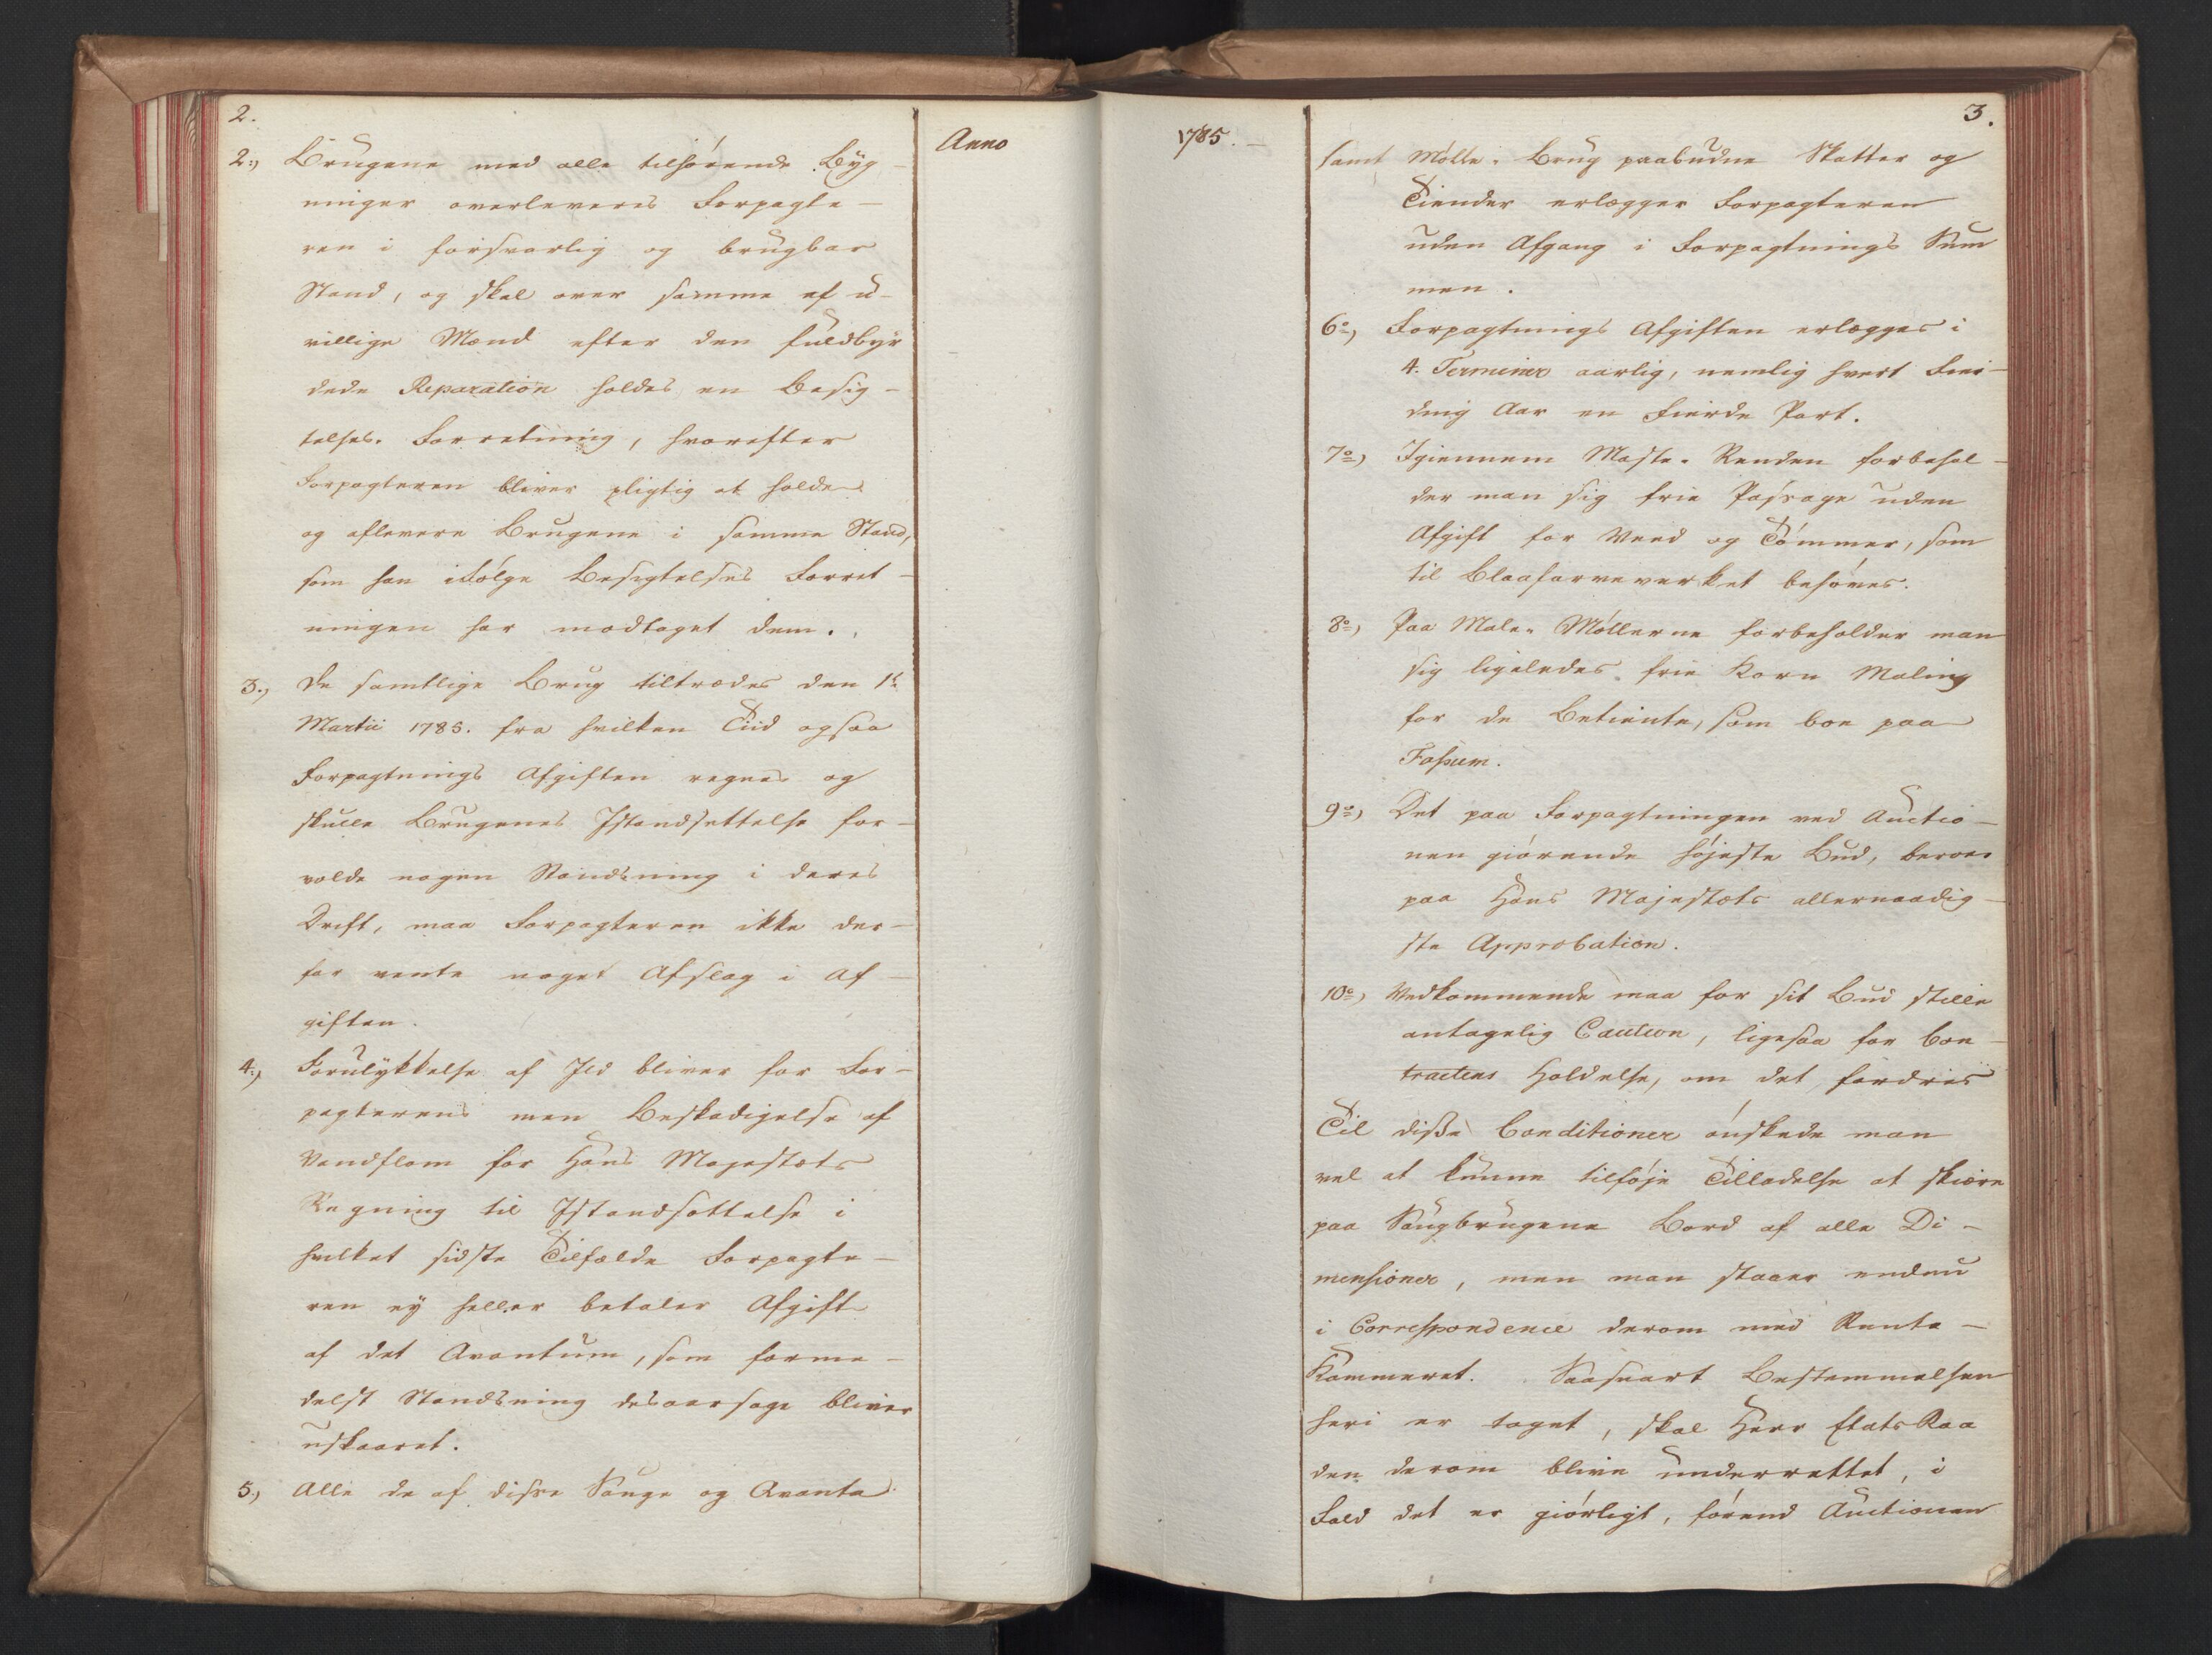 2.
Anno
2.) Brugene med alle tilhørende Byg-
ninger overleveres Forpagte-
ren i forsvarlig og brugbar
Stand, og skal over samme af u-
villige Mænd efter den fuldbyr
dede Reparation holdes en Besig-
telses-Forretning, hvorefter
Forpagteren bliver pligtig at holde
og aflevere Brugene i samme Stand,
som han ifølge Besigtelses Forret-
ningen har modtaget dem.
3.) De samtlige Brug tiltrædes den 1te
Martii 1785. fra hvilken Tiid ogsaa
Forpagtnings Afgiften regnes og
skulle Brugenes Istandsettelse for-
volde nogen Standsning i deres
Drift, maa Forpagteren ikke der-
for vente noget Afslag i Af-
giften.
4.) Forulykkelse af Ild bliver for For-
pagterens men Beskadigelse af
Vandflom for Hans Majestæts
Regning til Istandsættelse i
hvilket sidste Tilfælde Forpagte-
ren ey heller betaler Afgift
af det Qvantum, som forme-
delst Standsning desaarsage bliver
uskaaret.
5.) Alle de af disse Sauge og Qvanta
1785.
3.
samt Mølle-Brug paabudne Skatter og
Tiender erlægger Forpagteren
uden Afgang i Forpagtnings Sum
men.
6o,) Forpagtnings Afgiften erlægges i
4. Terminer aarlig, nemlig hvert Fier-
ding Aar en Fierde Part.
7o,) Igiennem Maste-Renden forbehol-
der man sig frie Passage uden
Afgift for Veed og Tømmer, som
til Blaafarveverket behøves.
8o,) Paa Male-Møllerne forbeholder man
sig ligeledes frie Korn Maling
for de Betiente, som boe paa
Fossum.
9o,) Det paa Forpagtningen ved Auctio-
nen giørende høyeste Bud, beroer
paa Hans Majestæts allernaadig-
ste Approbation.
10o,) Vedkommende maa for sit Bud stille
antagelig Caution, ligesaa for Con-
tractens Holdelse, om det fordres
Til disse Conditioner ønskede man
vel at kunne tilføje Tilladelse at skiære
paa Saugbrugene Bord af alle Di-
mensioner, men man staaer endnu
i Correspondence derom med Rente-
Kammeret. Saasnart Bestemmelsen
heri er taget, skal Herr Etats Raa
den derom blive underrettet, i
Fald det er giørligt, førend Auctionen